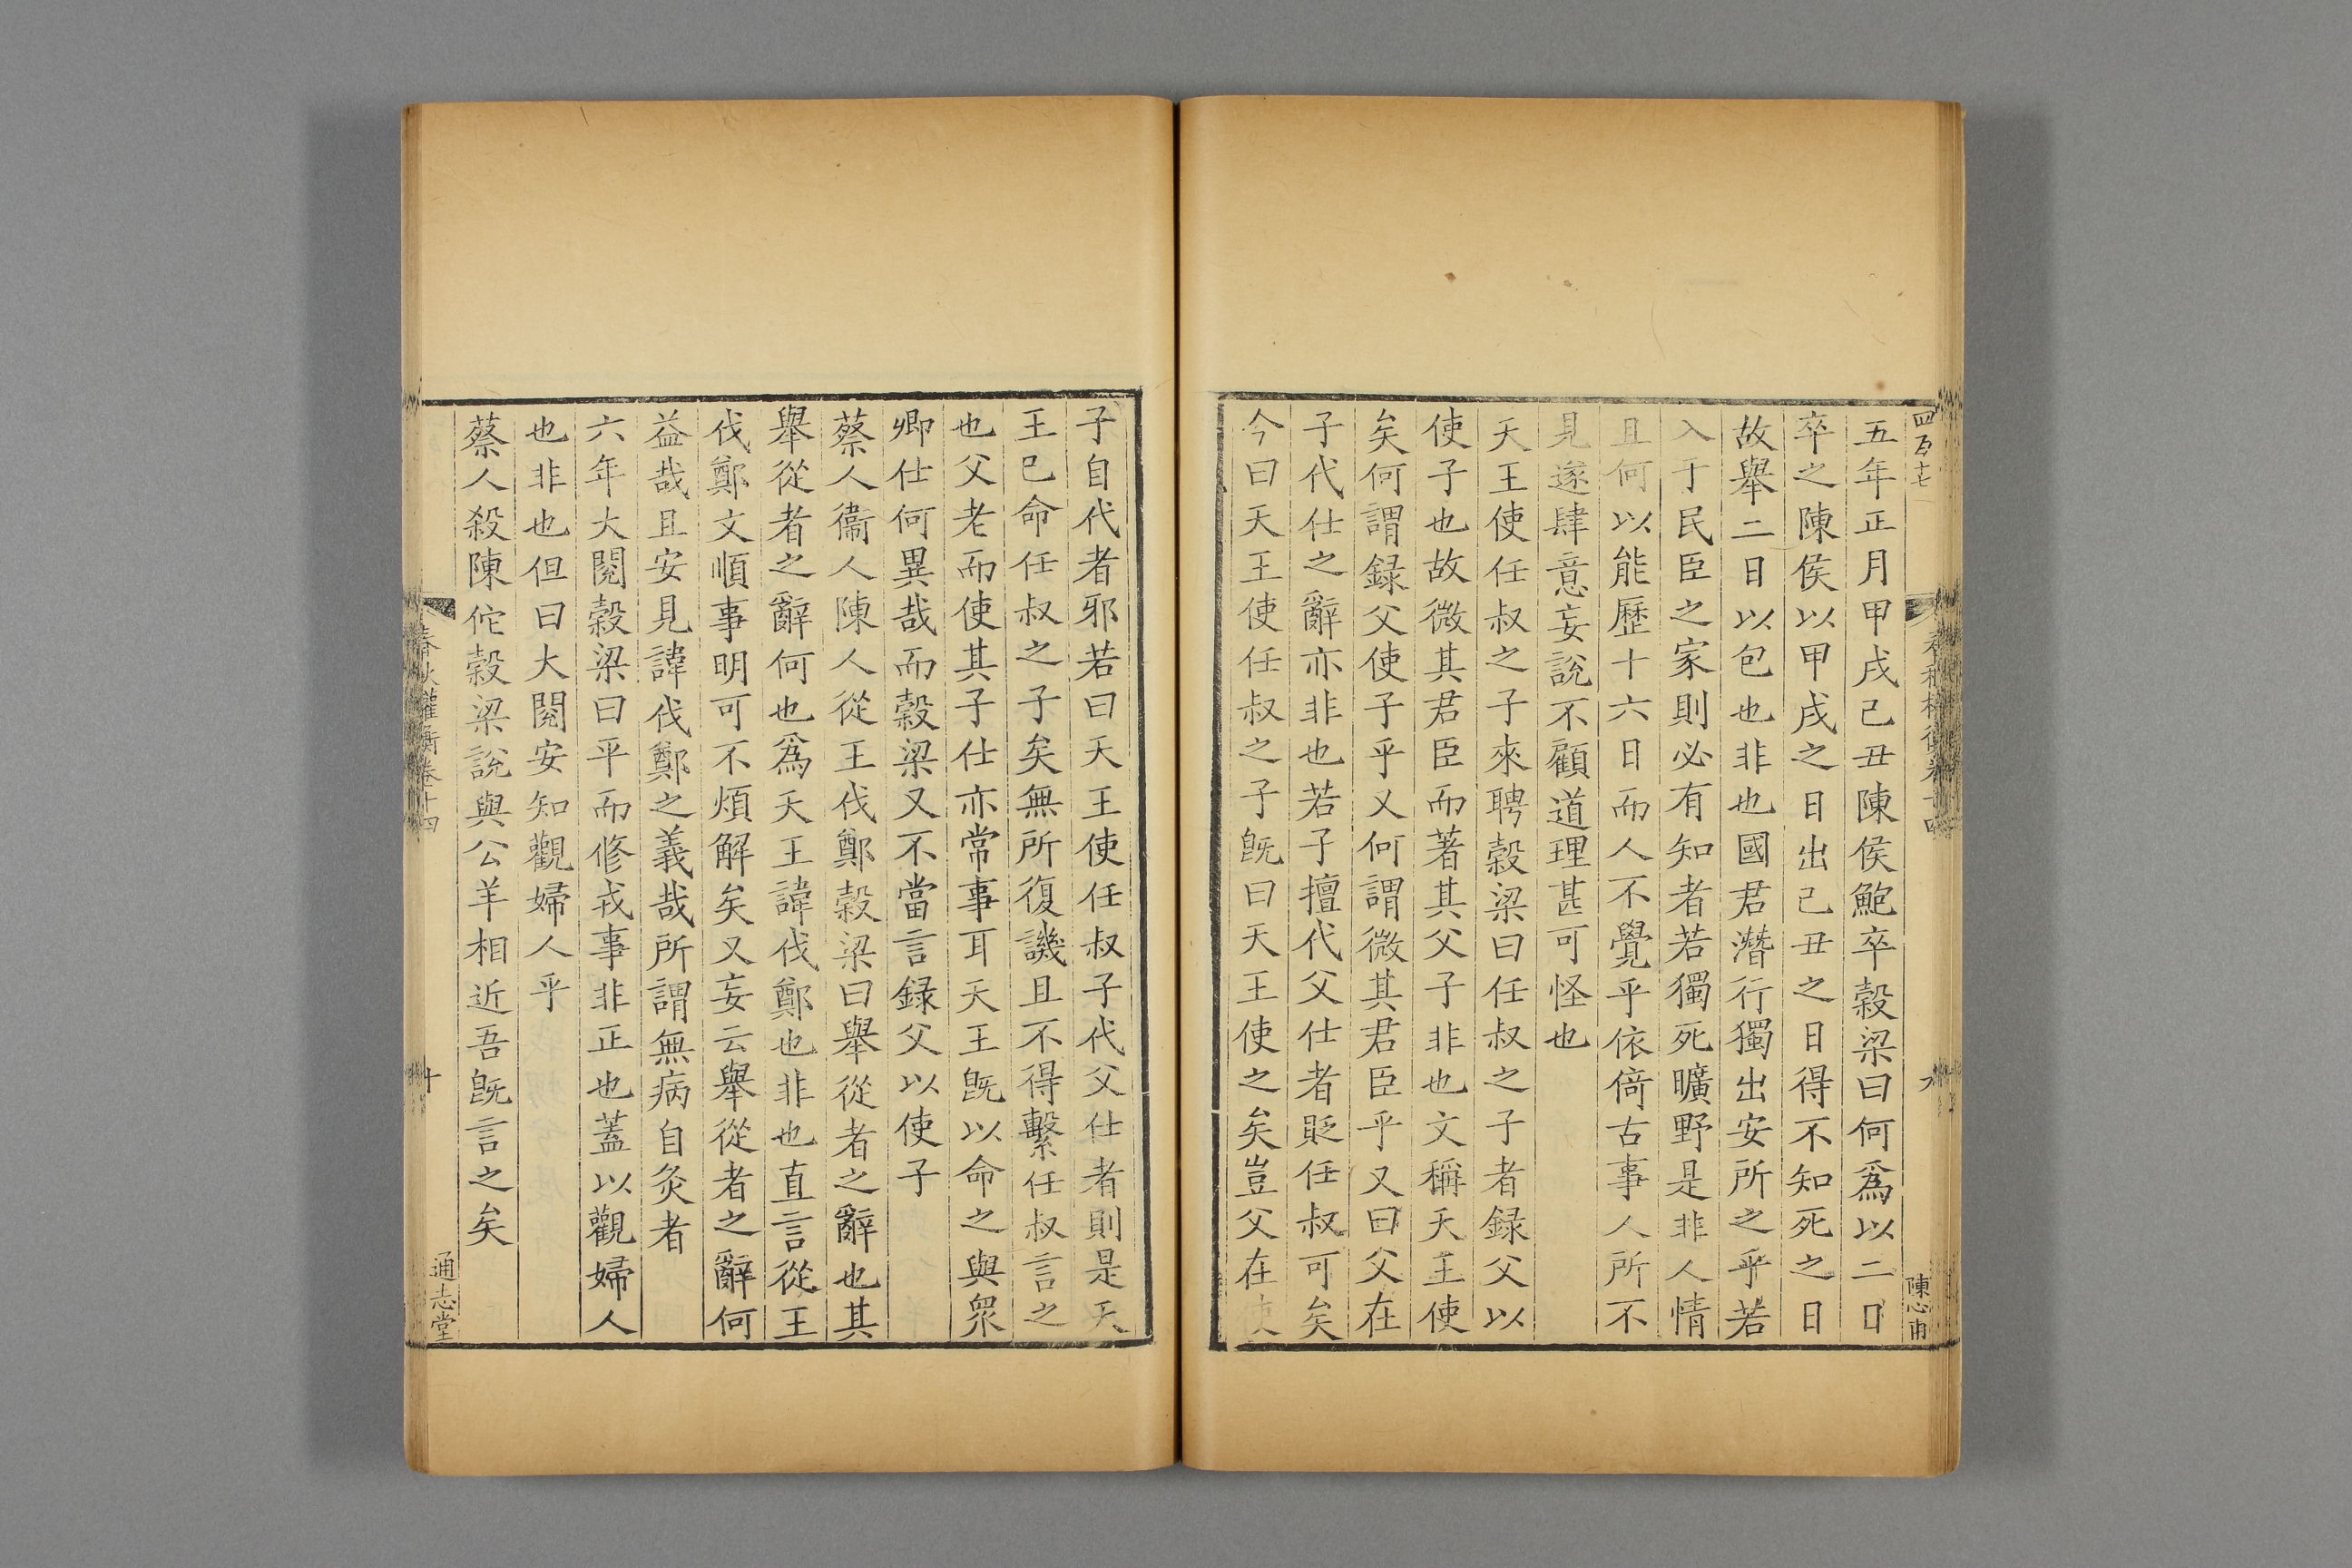 四百十七
春秋權衡卷十四
九
陳心甫
五年正月甲戌己丑陳侯鮑卒穀梁曰何爲以二日
卒之陳侯以甲戌之日出己丑之日得不知死之日
故舉二日以包也非也國君潛行獨出安所之乎若
入于民臣之家則必有知者若獨死曠野是非人情
且何以能歷十六日而人不覺乎依倚古事人所不
見遂肆意妄說不顧道理甚可怪也
天王使任叔之子來聘穀梁曰任叔之子者録父以
使子也故微其君臣而著其父子非也文稱天王使
矣何謂録父使子乎又何謂微其君臣乎又曰父在
子代仕之辭亦非也若子擅代父仕者貶任叔可矣
今曰天王使任叔之子旣曰天王使之矣豈父在使
子自代者邪若曰天王使任叔子代父仕者則是天
王已命任叔之子矣無所復譏且不得繫任叔言之
也父老而使其子仕亦常事耳天王旣以命之與眾
卿仕何異哉而穀梁又不當言録父以使子
蔡人衞人陳人從王伐鄭穀梁曰舉從者之辭也其
舉從者之辭何也爲天王諱伐鄭也非也直言從王
伐鄭文順事明可不煩解矣又妄云舉從者之辭何
益哉且安見諱伐鄭之義哉所謂無病自灸者
六年大閱穀梁曰平而修戎事非正也蓋以觀婦人
也非也但曰大閱安知觀婦人乎
蔡人殺陳佗穀梁說與公羊相近吾旣言之矣
春秋權衡卷十四
十
通志堂